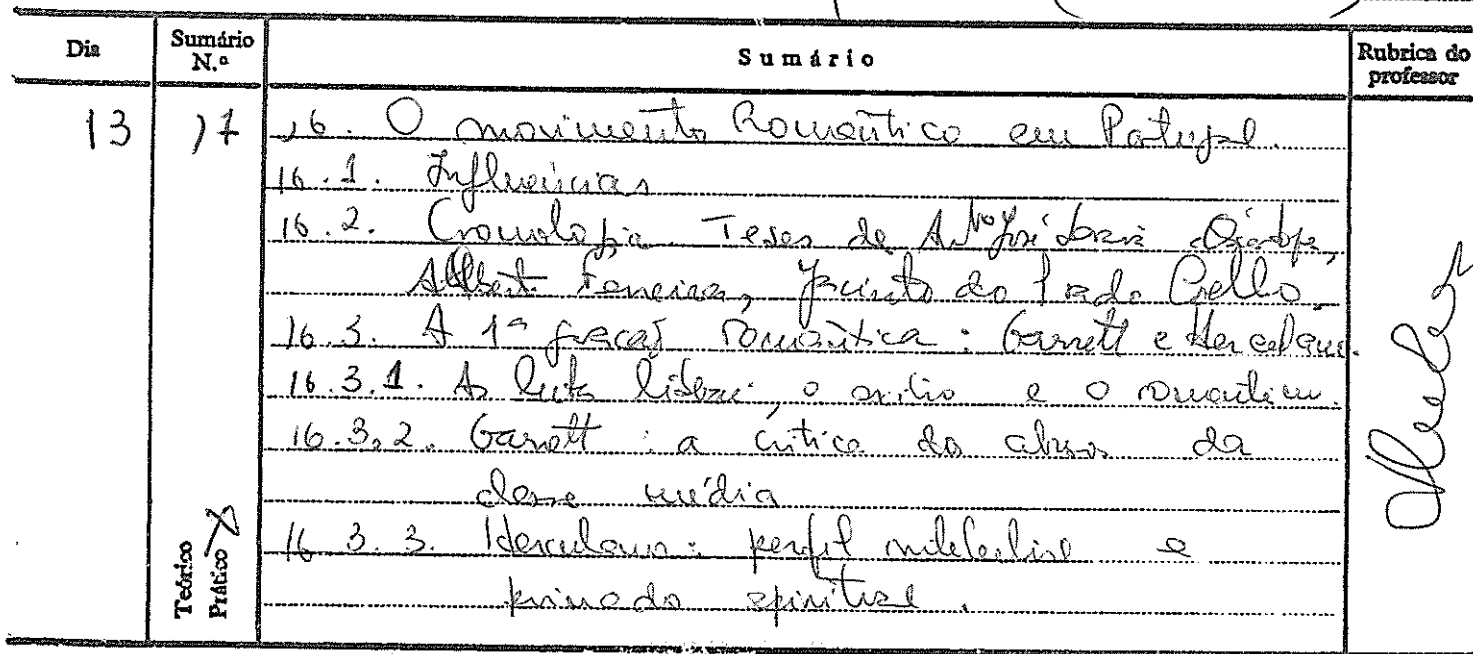 Dia
Sumário N.º
Sumário
Rubrica do professor
13
17
16. O movimento Romântico em Portugal.
16.1. Influências
16.2. Cronologia Teses de António José Saraiva
Alberto Ferreira, Jacinto do Prado Coelho
16.3. A 1ª geração romântica: Garrett e Herculano.
16.3.1. As lutas liberais, o exílio e o romantismo.
16.3.2. Garrett: a crítica do abuso da
classe média
16.3.3. Herculano: perfil intelectual e
primado espiritual.
Teórico
Prático X